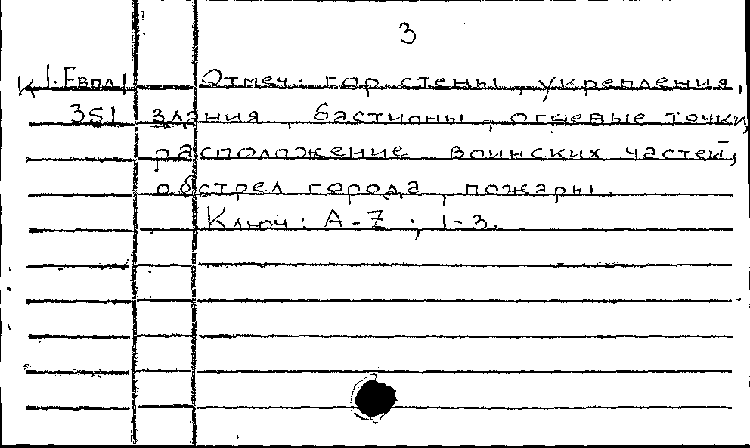 3
К 1-Евпл 1 Отмеч: гор. стены, укрепления,
351 здания, бастионы, огневые точки,
расположение воинских частей,
обстрел города, пожары.
Ключ: A-Z; 1-3.